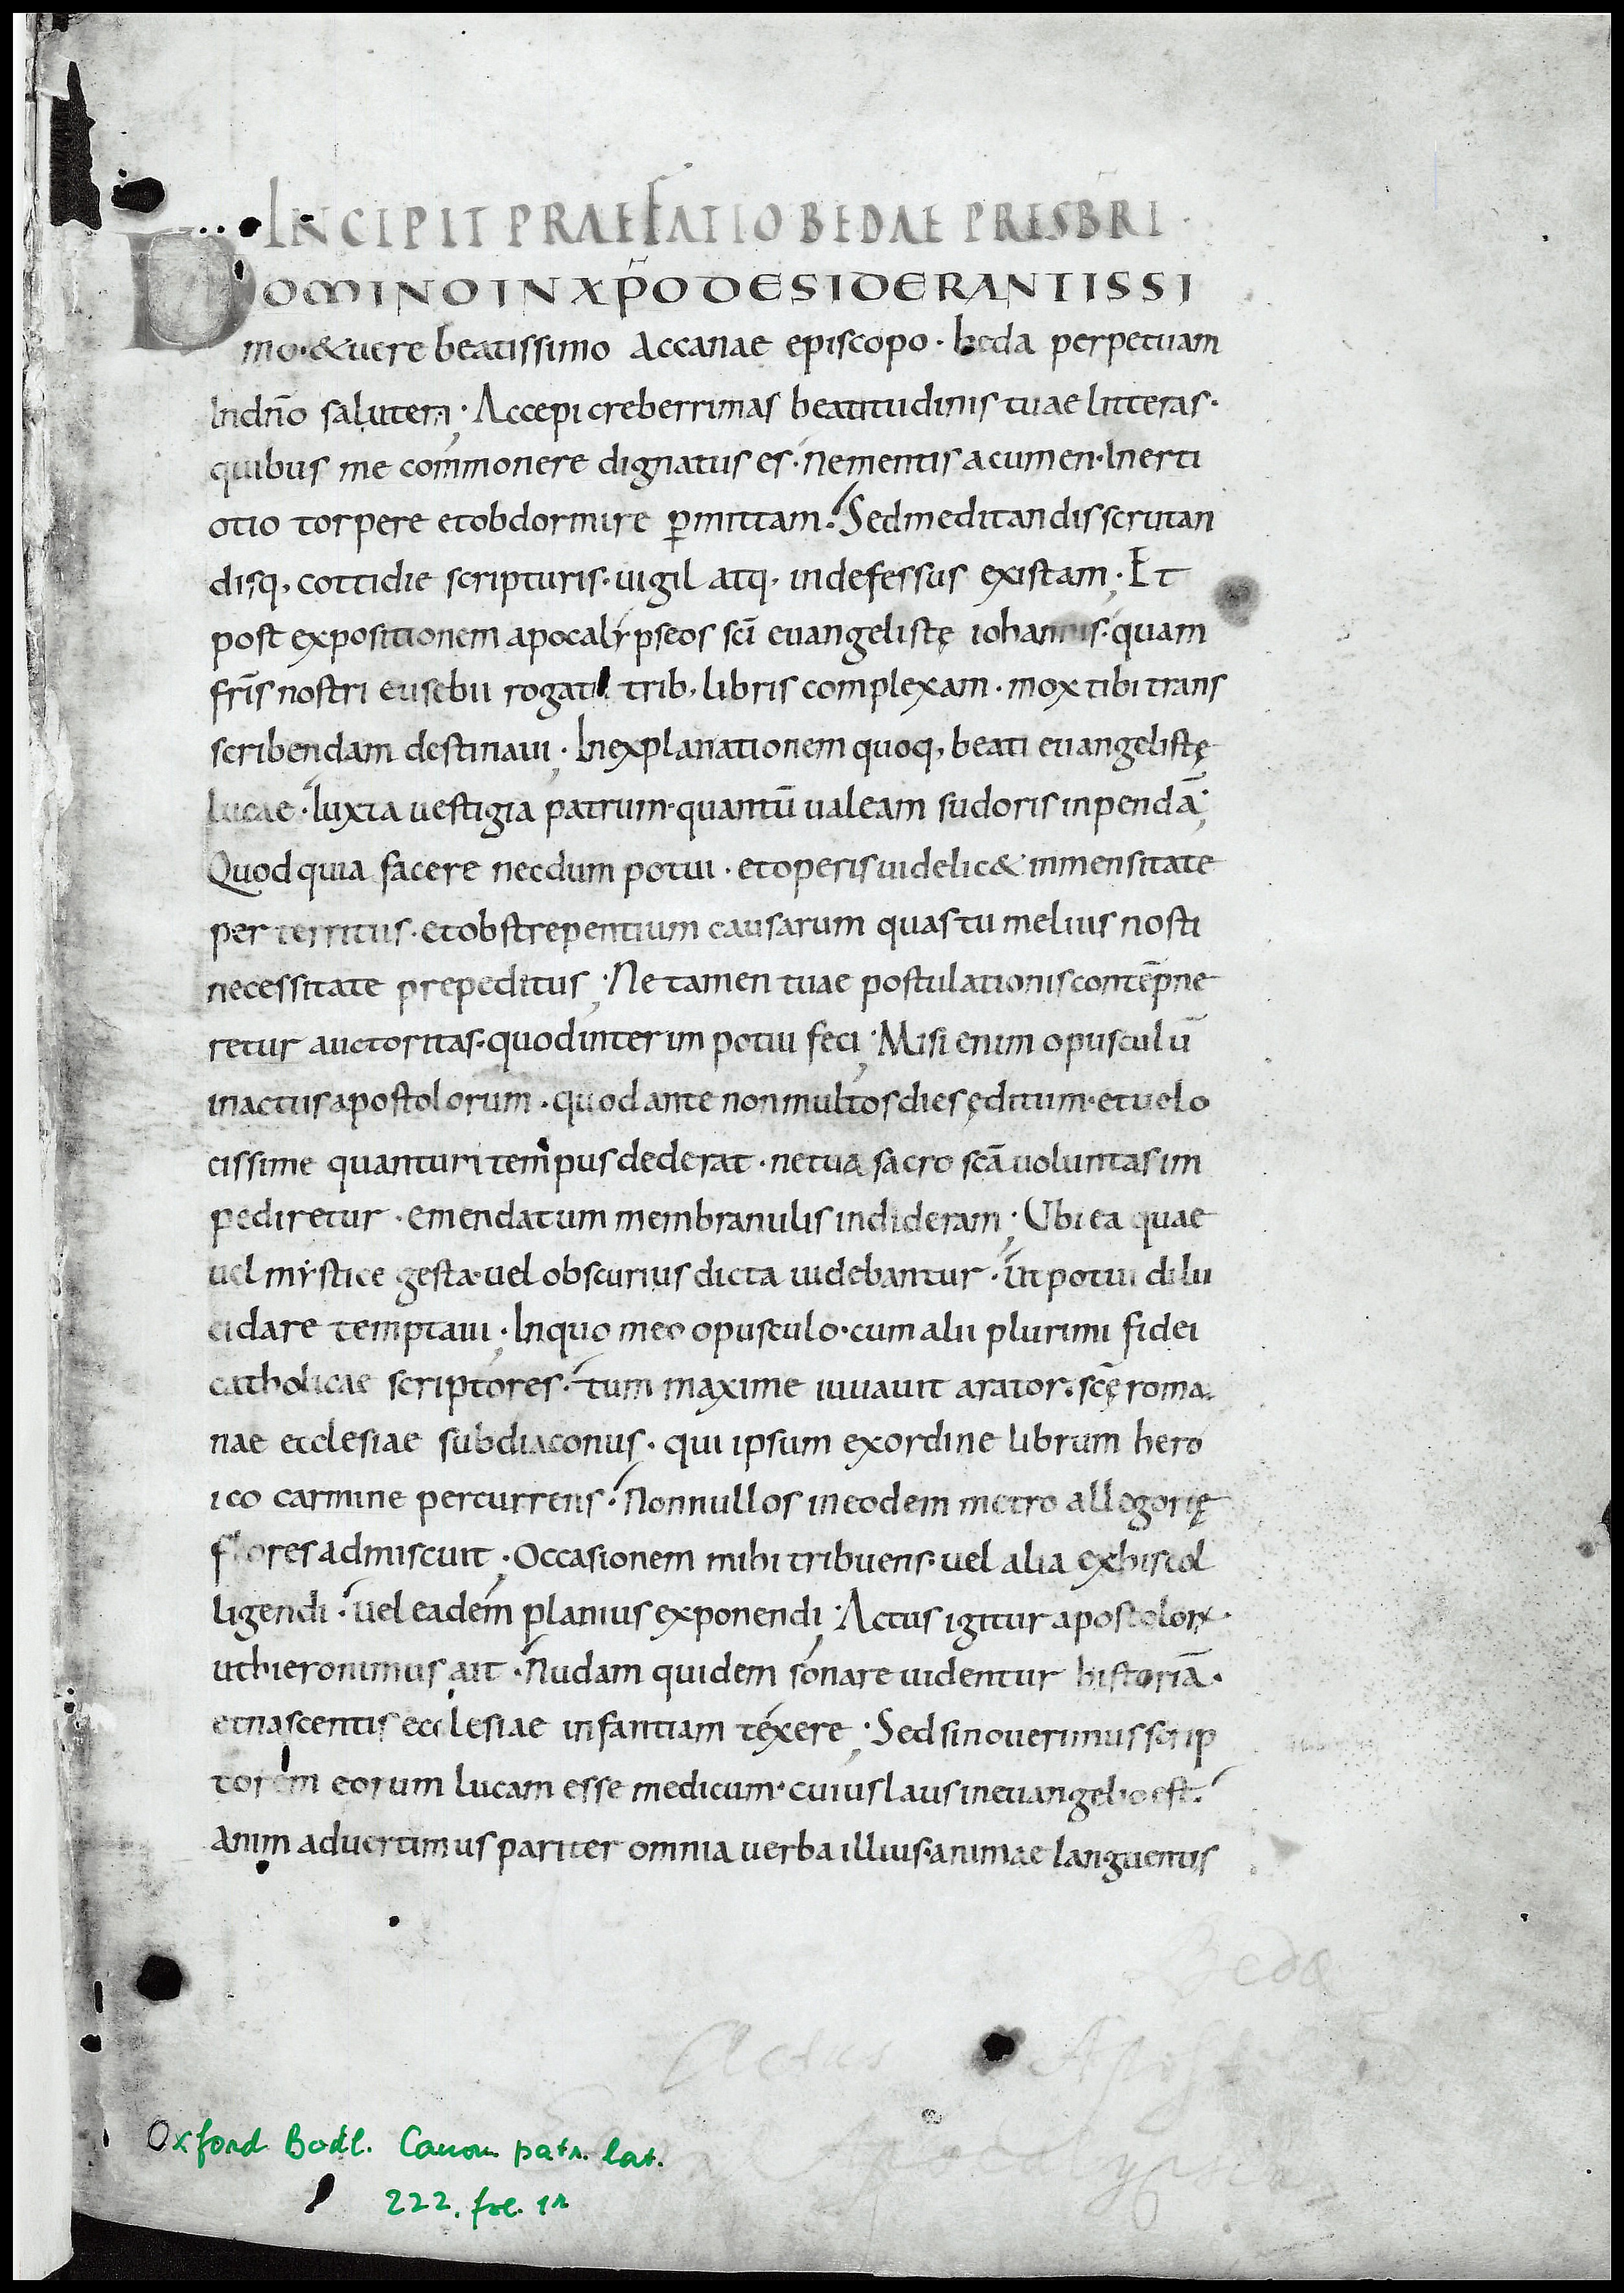 INCIPIT PRAEFATIO BEDAE PRESBRI
DOMINO IN XP̄O DESIDERANTISSI
mo · & uere beatissimo Accanae episcopo · beda perpetuam
In dn̄o salutem ; Accepi creberrimas beatitudinis tuae litteras ·
quibus me commonere dignatus es · Ne mentis acumen · Inerti
otio torpere et obdormire p̱mittam · Sed meditandis scrutan
disq; cottidie scripturis · uigil atq; indefessus existam ; Et
post expositionem apocalypseos sc̄i euangelistę iohannis · quam
fr̄is nostri eusebii rogatu trib; libris complexam · mox tibi trans
scribendam destinaui ; In explanationem quoq; beati euangelistę
lucae · Iuxta uestigia patrum · quantū ualeam sudoris inpendā ;
Quod quia facere necdum potui · et operis uidelic& inmensitate
perterritus · et obstrepentium causarum quas tu melius nosti
necessitate prepeditus ; Ne tamen tuae postulationis contēpne
retur auctoritas · quod interim potui feci ; Misi enim opusculū
in actus apostolorum · quod ante non multos dies ęditum · et uelo
cissime quanturi tempus dederat · ne tua sacro sc̄a uoluntas im
pediretur · emendatum membranulis indideram ; Ubi ea quae
uel mẏstice gesta · uel obscurius dicta uidebantur · Ut potui dilu
cidare temptaui ; In quo meo opusculo · cum alii plurimi fidei
catholicae scriptores · tum maxime iuuauit arator · sc̄ę roma
nae ecclesiae subdiaconus · qui ipsum ex ordine librum hero
ico carmine percurrens · Nonnullos in eodem metro allegorię
flores admiscuit ; Occasionem mihi tribuens · uel alia ex his col
ligendi · uel eadem planius exponendi ; Actus igitur apostoloꝝ ·
ut hieronimus ait · Nudam quidem sonare uidentur historiā ·
et nascentis ecclesiae infantiam texere ; Sed si nouerimus scrip
torem eorum lucam esse medicum · cuius laus in euangelio est ·
animaduertimus pariter omnia uerba illius · animae languentis
Beda
Actus Apost
Oxford Bodl. Canon. patr. lat.
222. fol. 1r